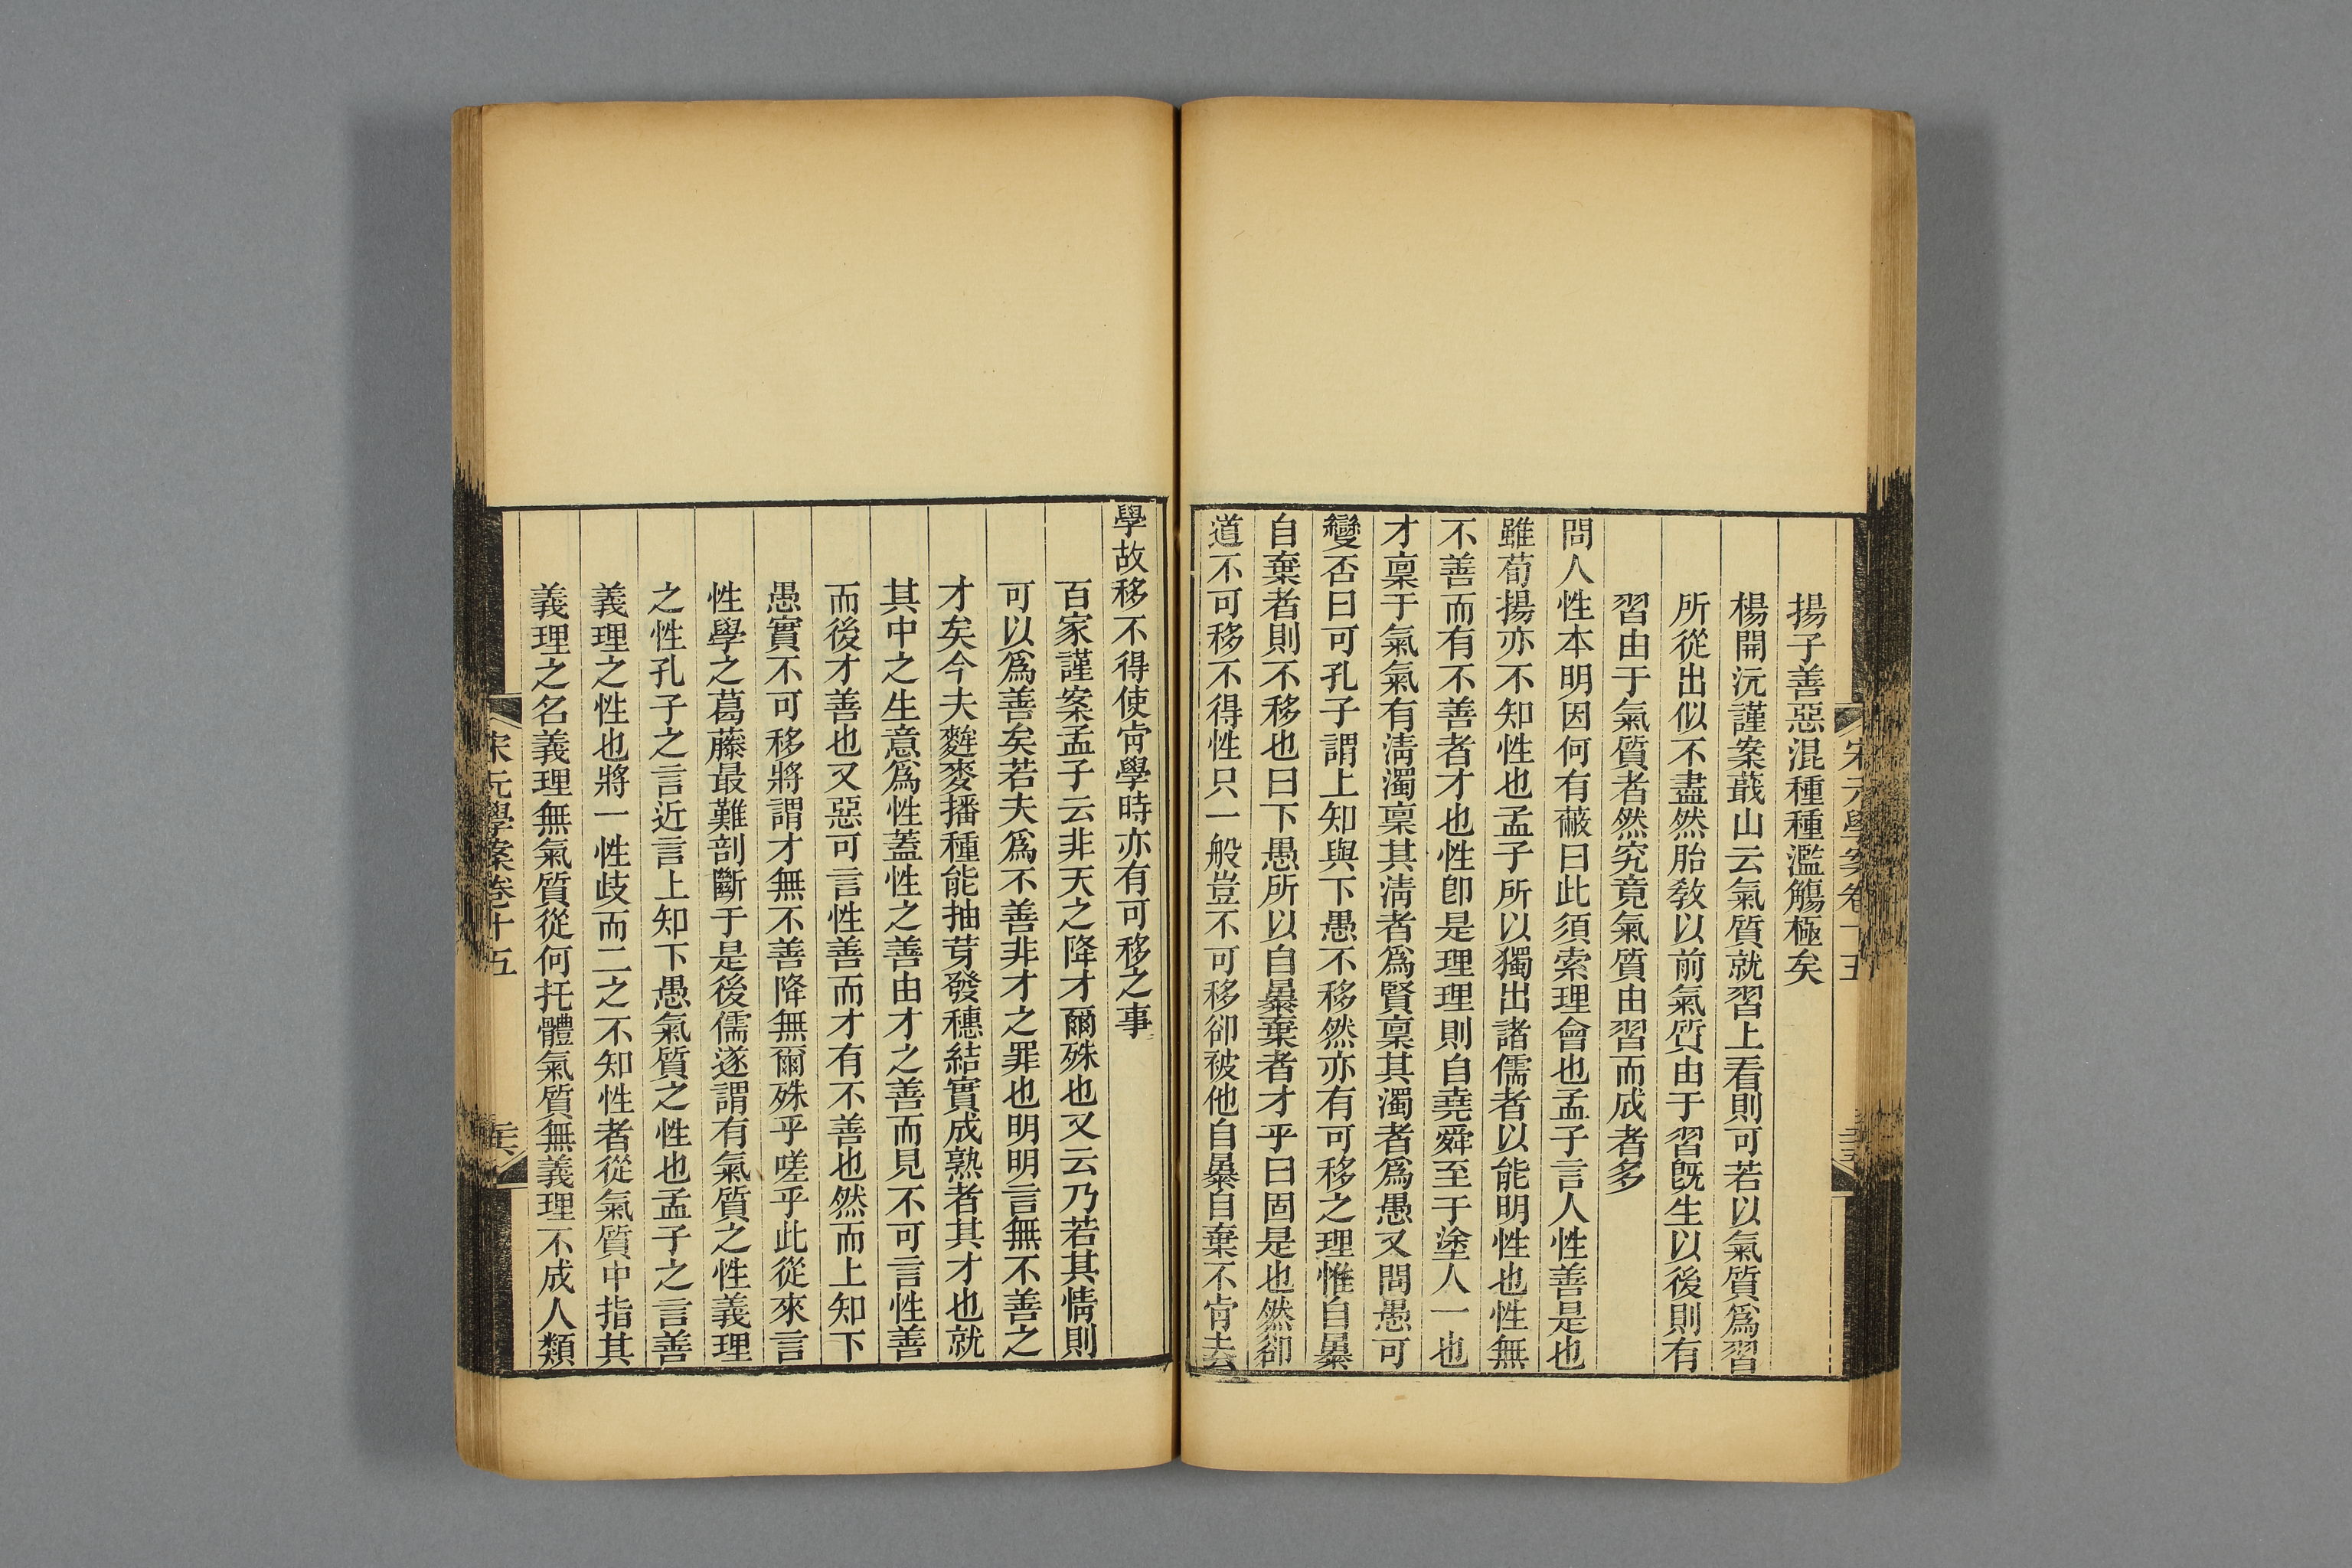 宋元學案卷十五
揚子善惡混種種濫觴極矣
楊開沅謹案蕺山云氣質就習上看則可若以氣質爲習
所從出似不盡然胎敎以前氣質由于習旣生以後則有
習由于氣質者然究竟氣質由習而成者多
問人性本明因何有蔽曰此須索理會也孟子言人性善是也
雖荀揚亦不知性也孟子所以獨出諸儒者以能明性也性無
不善而有不善者才也性卽是理理則自堯舜至于塗人一也
才稟于氣氣有淸濁稟其淸者爲賢稟其濁者爲愚又問愚可
變否曰可孔子謂上知與下愚不移然亦有可移之理惟自暴
自棄者則不移也曰下愚所以自暴棄者才乎曰固是也然卻
道不可移不得性只一般豈不可移卻被他自暴自棄不肯去
學故移不得使肯學時亦有可移之事
百家謹案孟子云非天之降才爾殊也又云乃若其情則
可以爲善矣若夫爲不善非才之罪也明明言無不善之
才矣今夫麰麥播種能抽芽發穗結實成熟者其才也就
其中之生意爲性蓋性之善由才之善而見不可言性善
而後才善也又惡可言性善而才有不善也然而上知下
愚實不可移將謂才無不善降無爾殊乎嗟乎此從來言
性學之葛藤最難剖斷于是後儒遂謂有氣質之性義理
之性孔子之言近言上知下愚氣質之性也孟子之言善
義理之性也將一性歧而二之不知性者從氣質中指其
義理之名義理無氣質從何托體氣質無義理不成人類
宋元學案卷十五